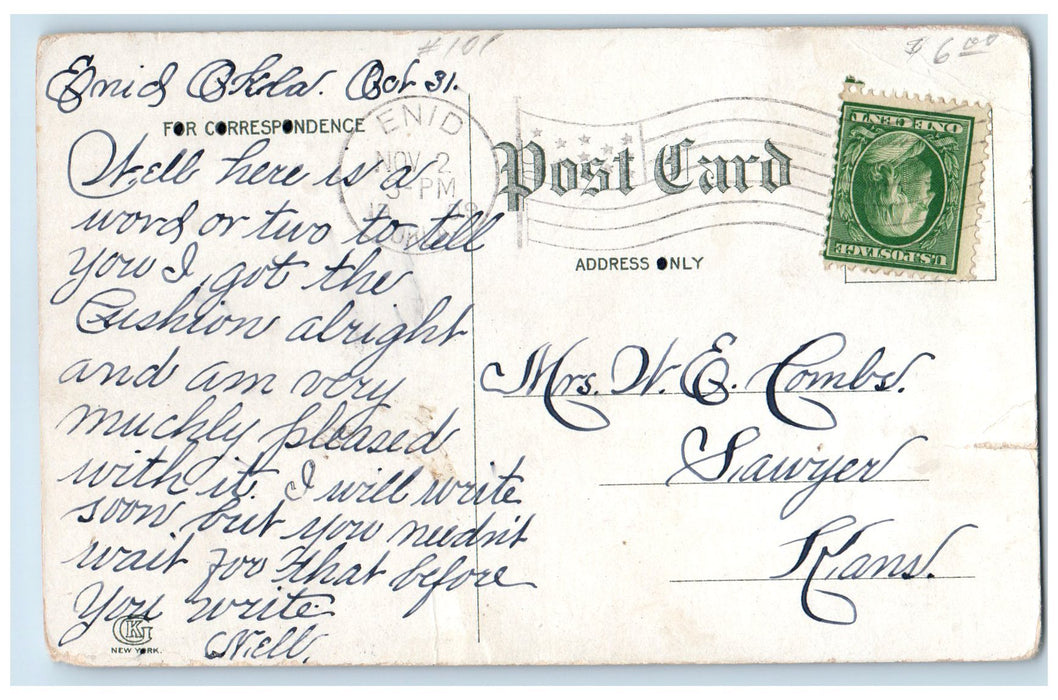 #101
$6.00
Enid Okla. Oct 31.
FOR CORRESPONDENCE
Well here is a
word or two to tell
you I got the
Cushion alright
and am very
muchly pleased
with it. I will write
soon but you needn't
wait for that before
You write.
Nell.
CKG
NEW YORK.
ENID
NOV 2
PM
OKLA
Post Card
ADDRESS ONLY
ONE CENT
U.S. POSTAGE
Mrs. W. E. Combs.
Sawyer
Kans.